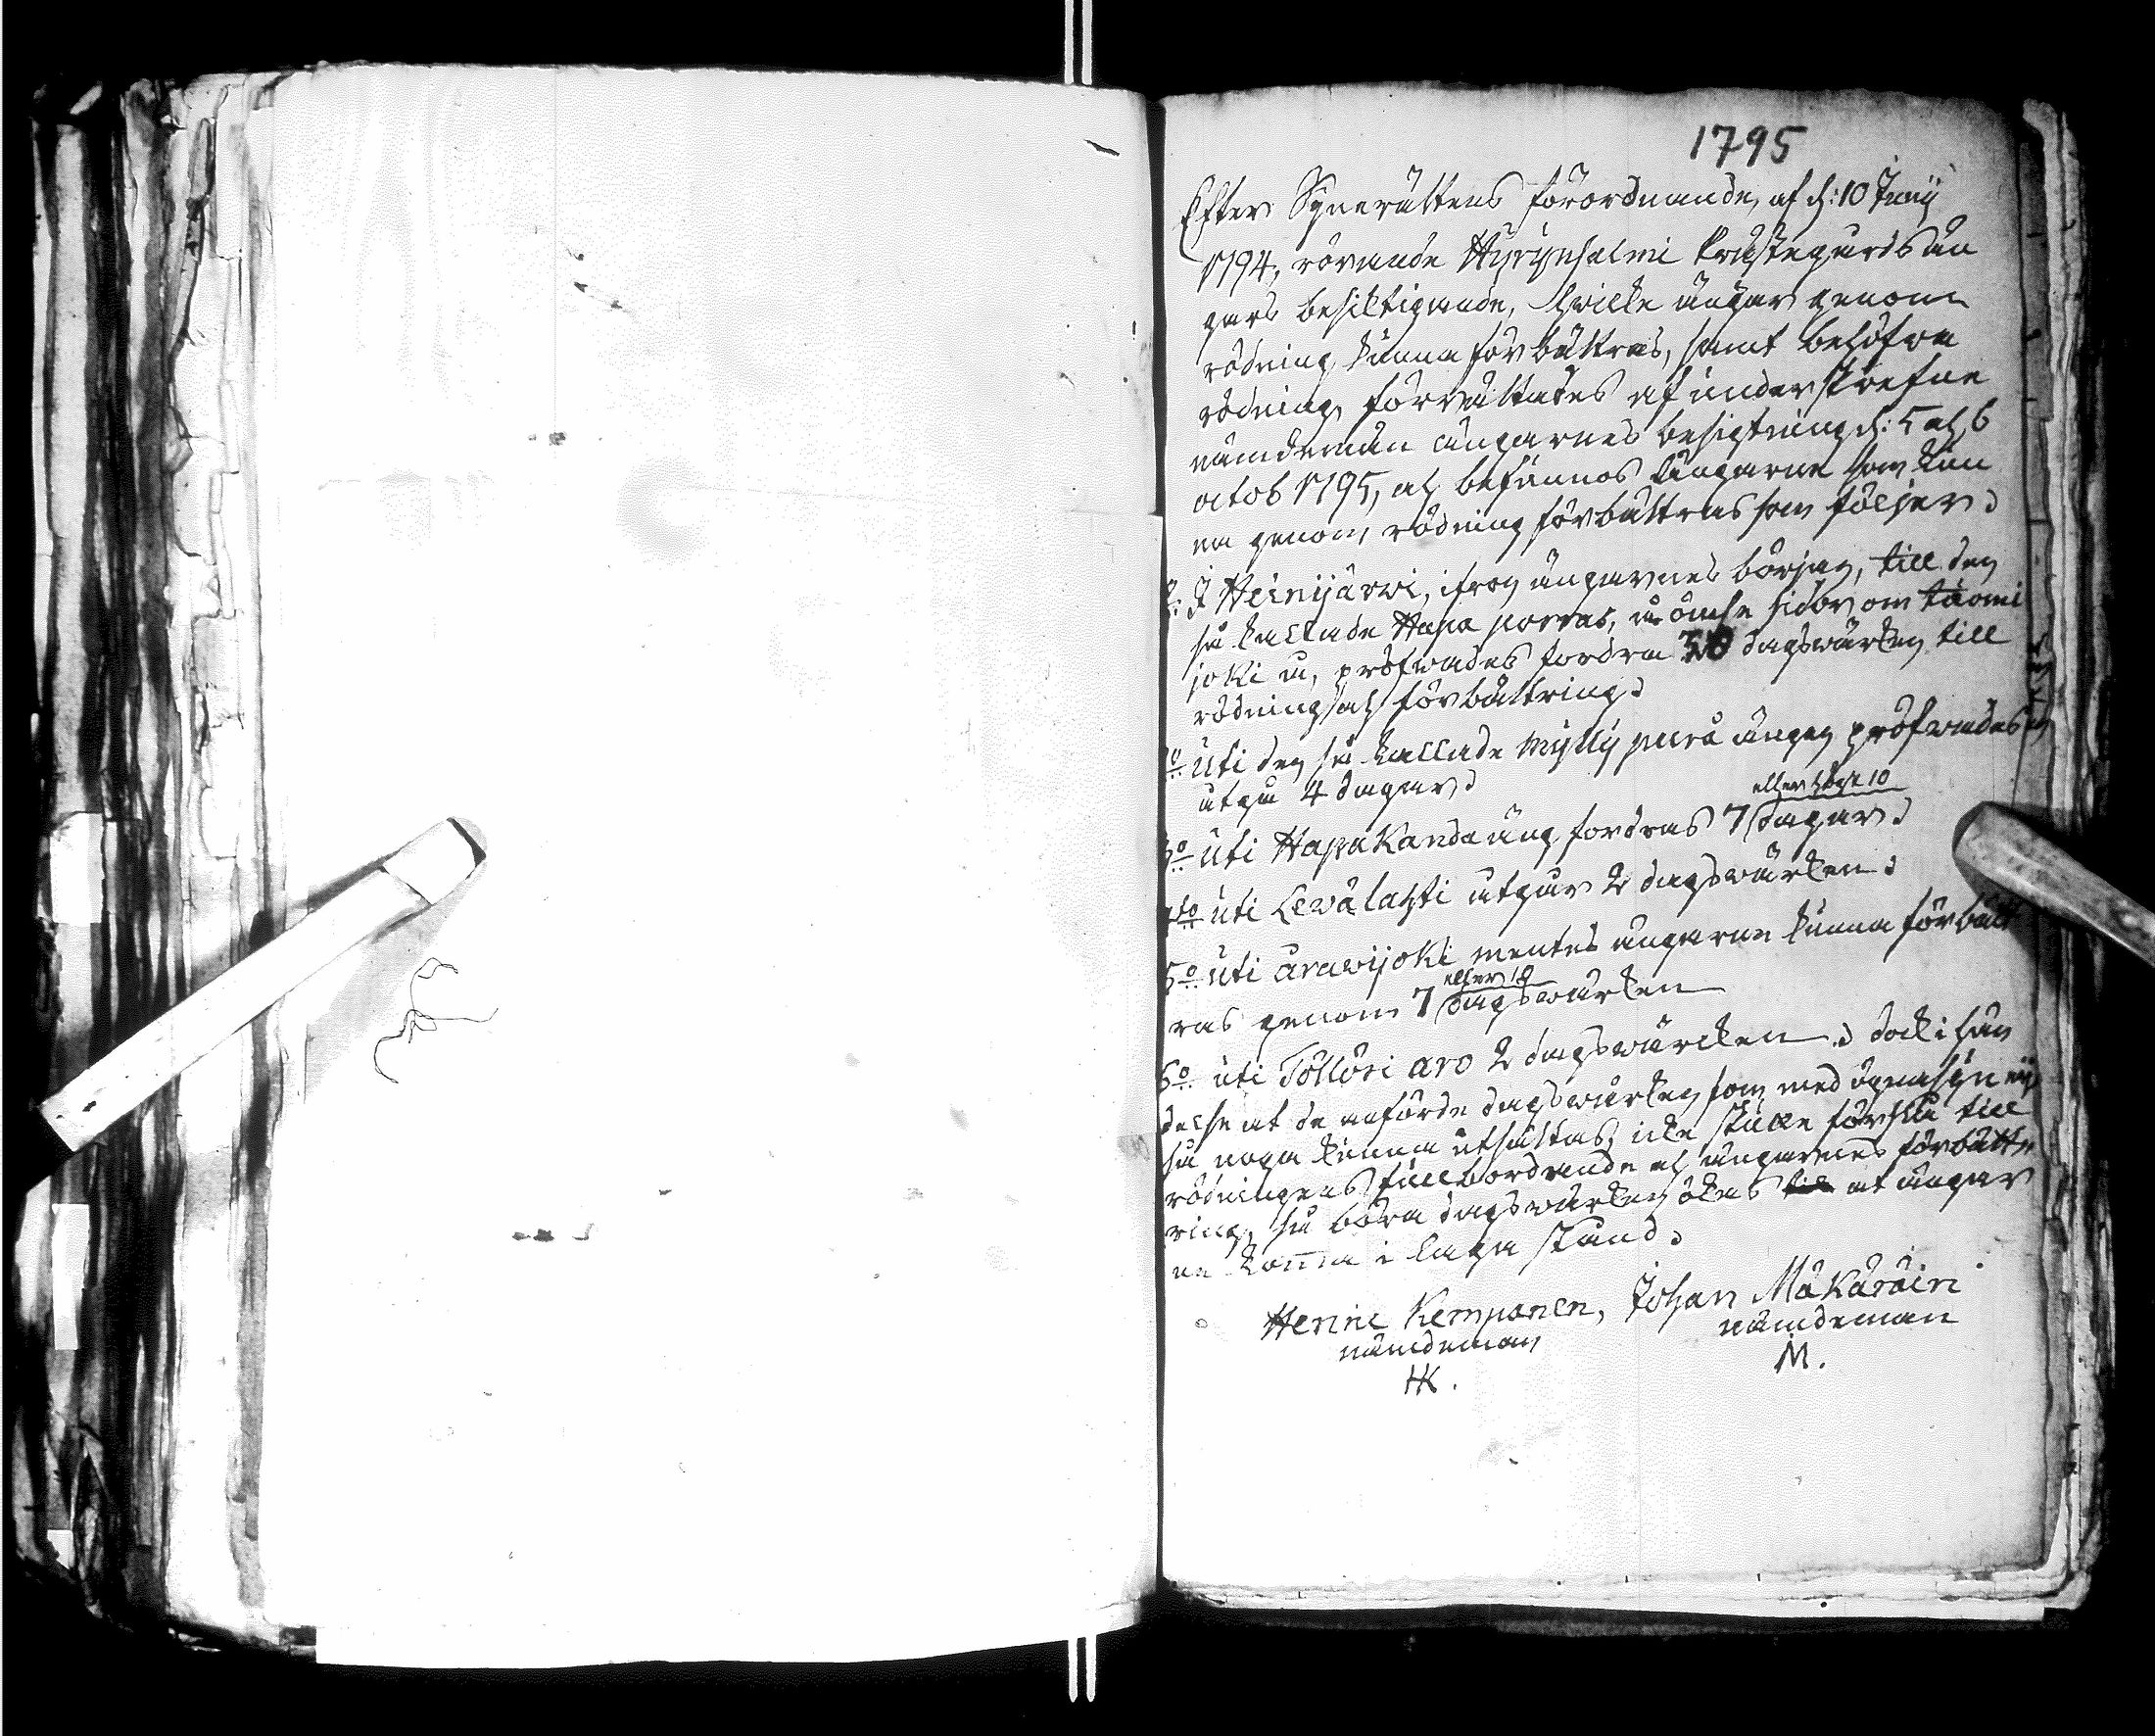 1795
Efter Synerättens förordnande, af d: 10 Junij
1794, rörande Hyrynsalmi Prästegårds än
gars besiktigande, hvilka ängar genom
rödning kunna förbättras, samt behöfva
rödning, förrättades af underskrefne
nämdemän ängarnes besigtning d: 5 och 6
octob 1795, och befunnos ängarne som kun
na genom rödning förbättras som följer:
I Heinijärwi, ifrån ängarnes början, till den
så kallade Hapa porras, å ömse sidor om Luomi
joki å, pröfwades fordra dagswärken till
rödning och förbättring.
uti den så kallade Mylly purå ängen pröfwades
utgå 4 dagar.
eller högst 10
3o uti Hapakanda äng fordras 7 dagar.
4to uti Lewälahti utgår 2 dagswärken.
5o uti Arawijoki mentes ängarne kunna förbätt
eller 10
ras genom 7 dagswärken
6o uti Töllöri aro 2 dagswärcken. dock i hän
delse at de anförde dagswärken som med ögnasyn eij
så noga kunna utsättas, icke skulle förslå till
rödningens fullbordande och ängarnes förbätt
ring, så böra dagswärken ökas at ängar
ne komma i laga stånd.
Henric Kemponen, Johan Mäkäräin
nämdeman nämdeman
HK. M.